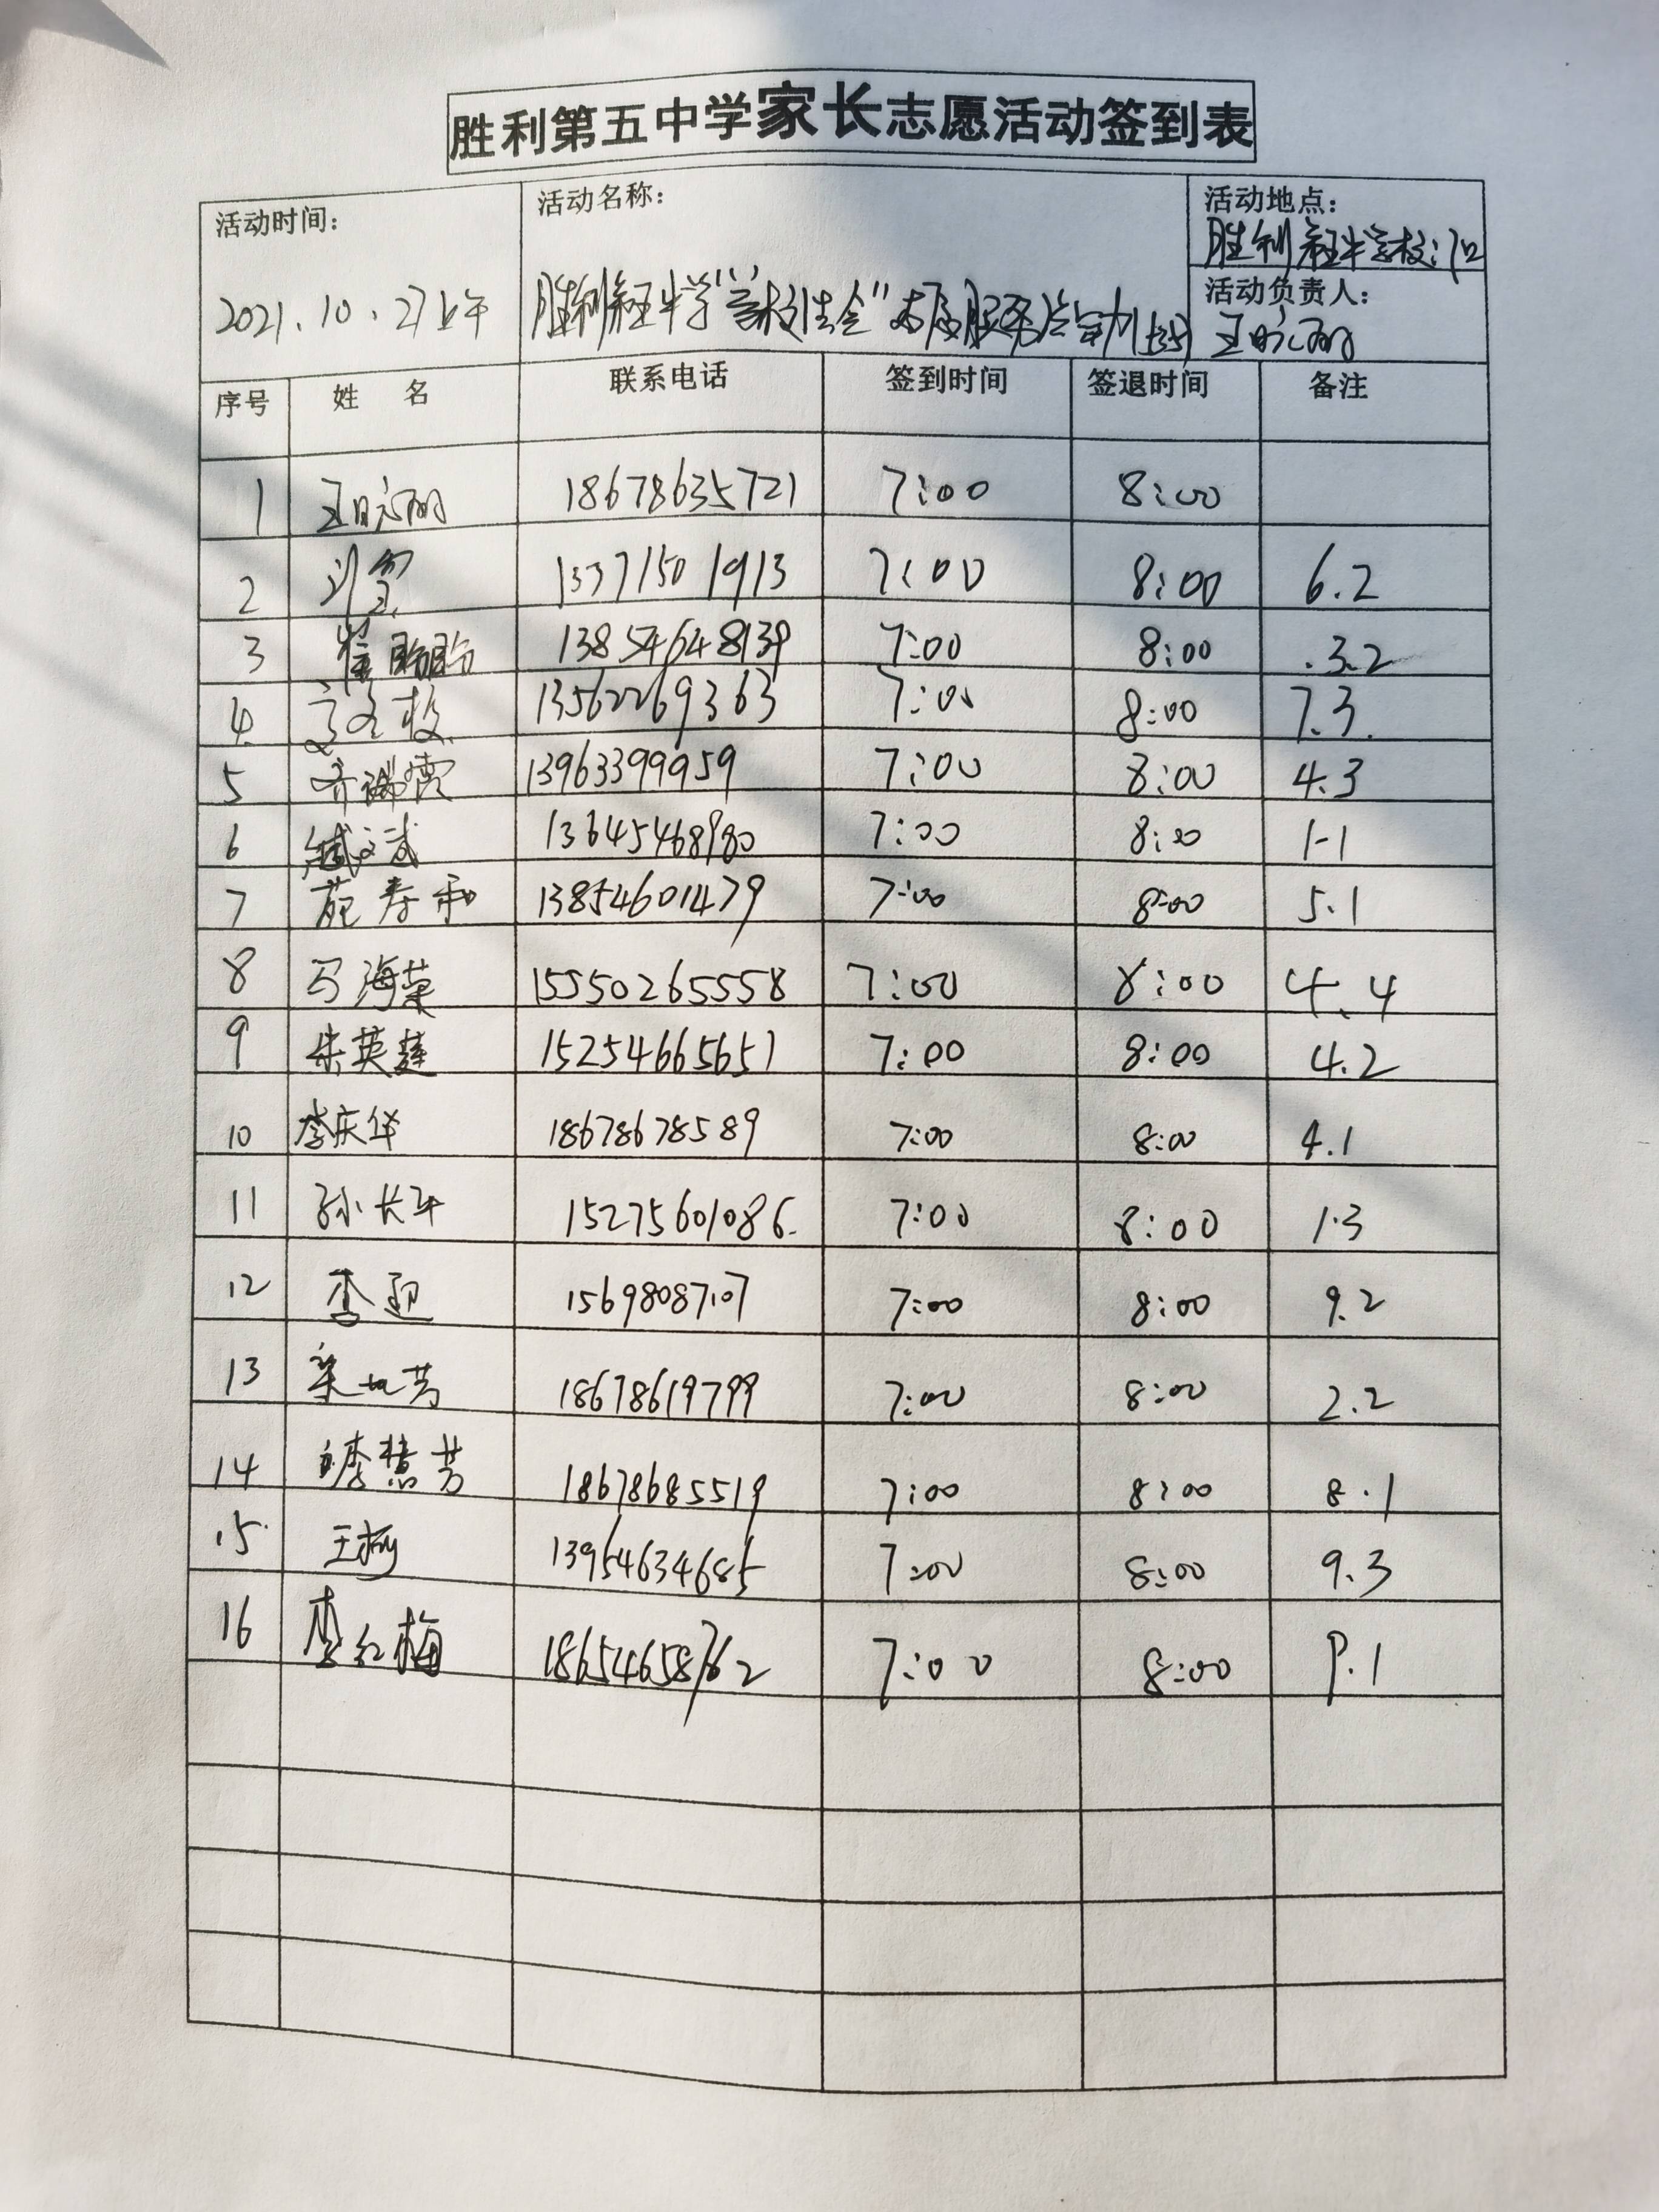 胜利第五中学家长志愿活动签到表
活动时间: 活动名称: 活动地点:
胜利第五中学校门口
活动负责人:
2021.10.27上午 胜利第五中学
序号 姓 名 联系电话 签到时间 签退时间 备注
1 18678635721 7:00 8:00
2 13371501913 7:00 8:00 6.2
3 崔盼盼 13854648139 7:00 8:00 .3.2
4 13562269363 7:00 8:00 7.3.
5 齐瑞霞 13963399959 7:00 8:00 4.3
6 13645468980 7:00 8:00 1-1
7 苑寿和 13854601479 7:00 8:00 5.1
8 马海荣 15550265558 7:00 8:00 4.4
9 朱英莲 15254665651 7:00 8:00 4.2
10 李庆华 18678678589 7:00 8:00 4.1
11 孙长军 15275601086. 7:00 8:00 1.3
12 李迎 15698087107 7:00 8:00 9.2
13 18678619799 7:00 8:00 2.2
14 李慧芳 18678685519 7:00 8:00 8.1
15 王梅 13954634685 7:00 8:00 9.3
16 李红梅 18654658762 7:00 8:00 9.1